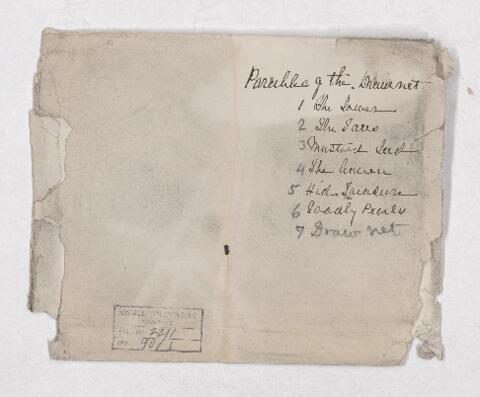 Parables of the Draw net
1 The Sower
2 The Tares
3 Mustard Seed
4 The Leaven
5 Hid Treasure
6 Goodly Pearls
7 Draw net
22/1
90/1